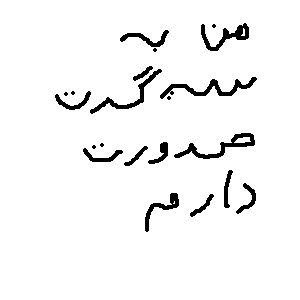 من به
سیگرت
صرورت
دارم